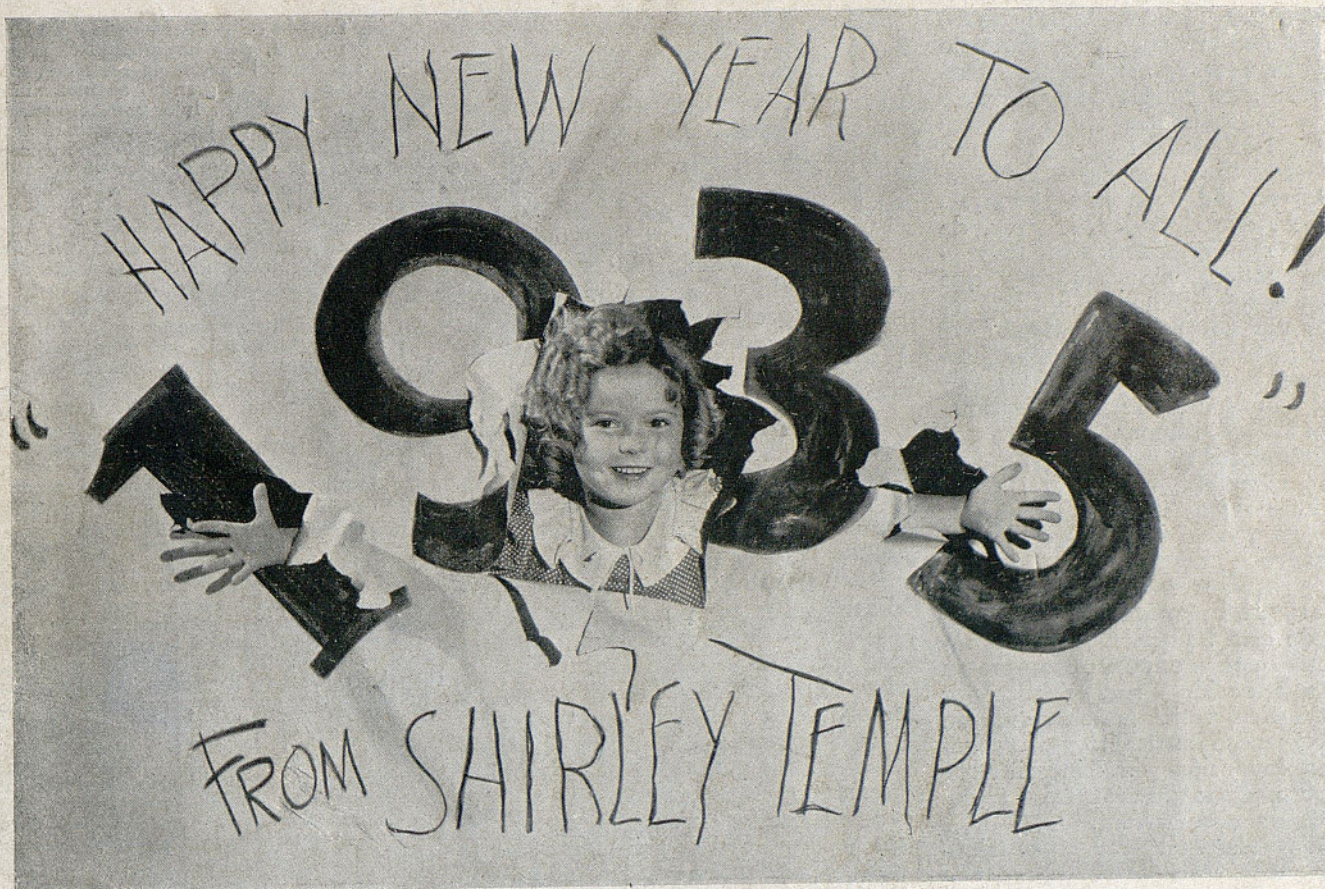 HAPPY NEW YEAR TO ALL!
"1935"
FROM SHIRLEY TEMPLE